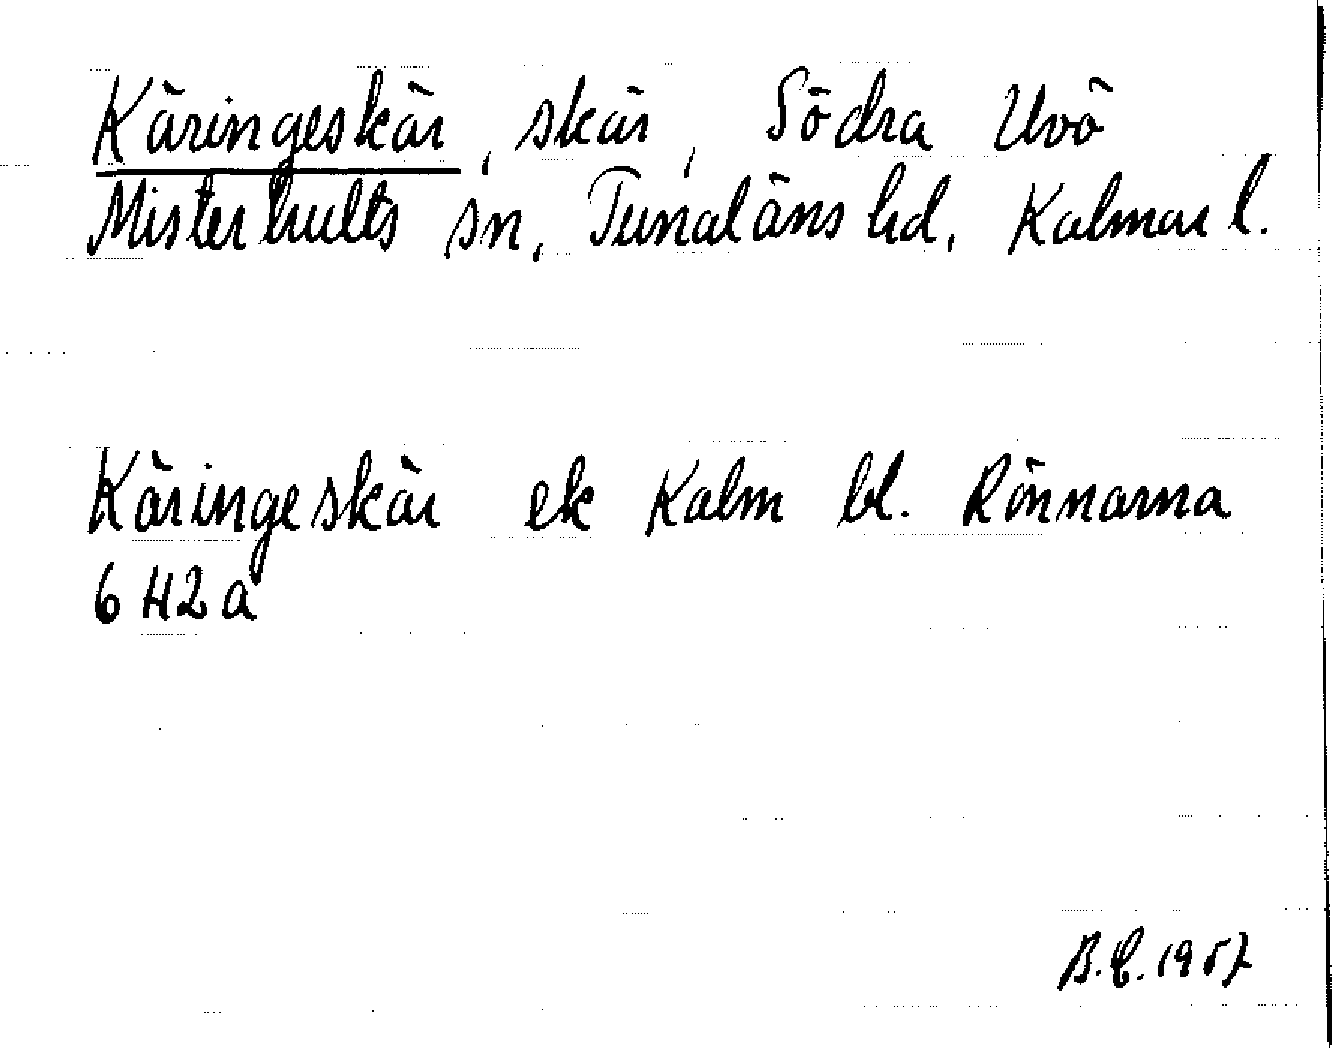 Käringeskär, skär, Södra Uvö
Misterhults sn, Tunaläns hd, Kalmar l.
Käringeskär ek Kalm bl. Rönnarna
6 H2a
B.E. 1957